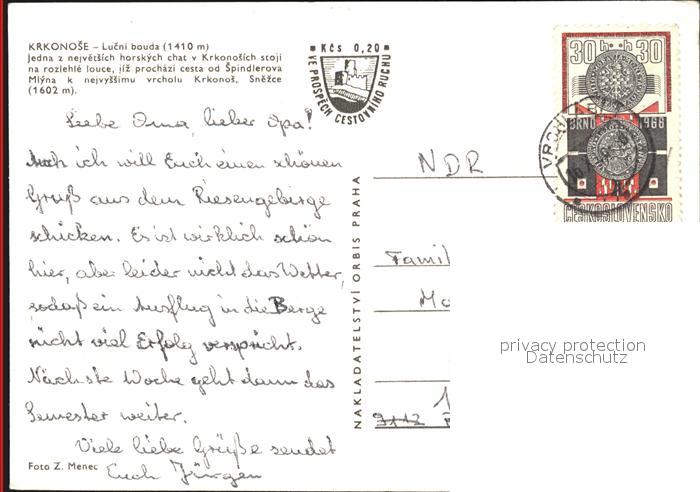 KRKONOŠE – Luční bouda (1410 m)
Jedna z největších horských chat v Krkonoších stojí
na rozlehlé louce, jíž prochází cesta od Špindlerova
Mlýna k nejvyššímu vrcholu Krkonoš, Sněžce
(1602 m).
Liebe Oma, lieber Opa!
Auch ich will Euch einen schönen
Gruß aus dem Riesengebirge
schicken. Es ist wirklich schön
hier, aber leider nicht das Wetter,
sodaß ein Ausflug in die Berge
nicht viel Erfolg verspricht.
Nächste Woche geht dann das
Semester weiter.
Viele liebe Grüße sendet
Euch Jürgen
Foto Z. Menec
NAKLADATELSTVÍ ORBIS PRAHA
Kčs 0,20
VE PROSPĚCH CESTOVNÍHO RUCHU
30 h h 30
BRNO 1968
ČESKOSLOVENSKO
NDR
Famil
Mo
1
privacy protection
Datenschutz